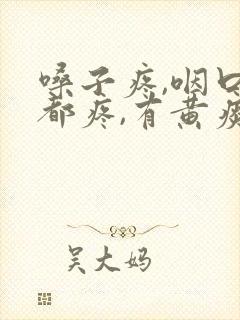 嗓子疼,咽口
都疼,有黄痰
吴大妈